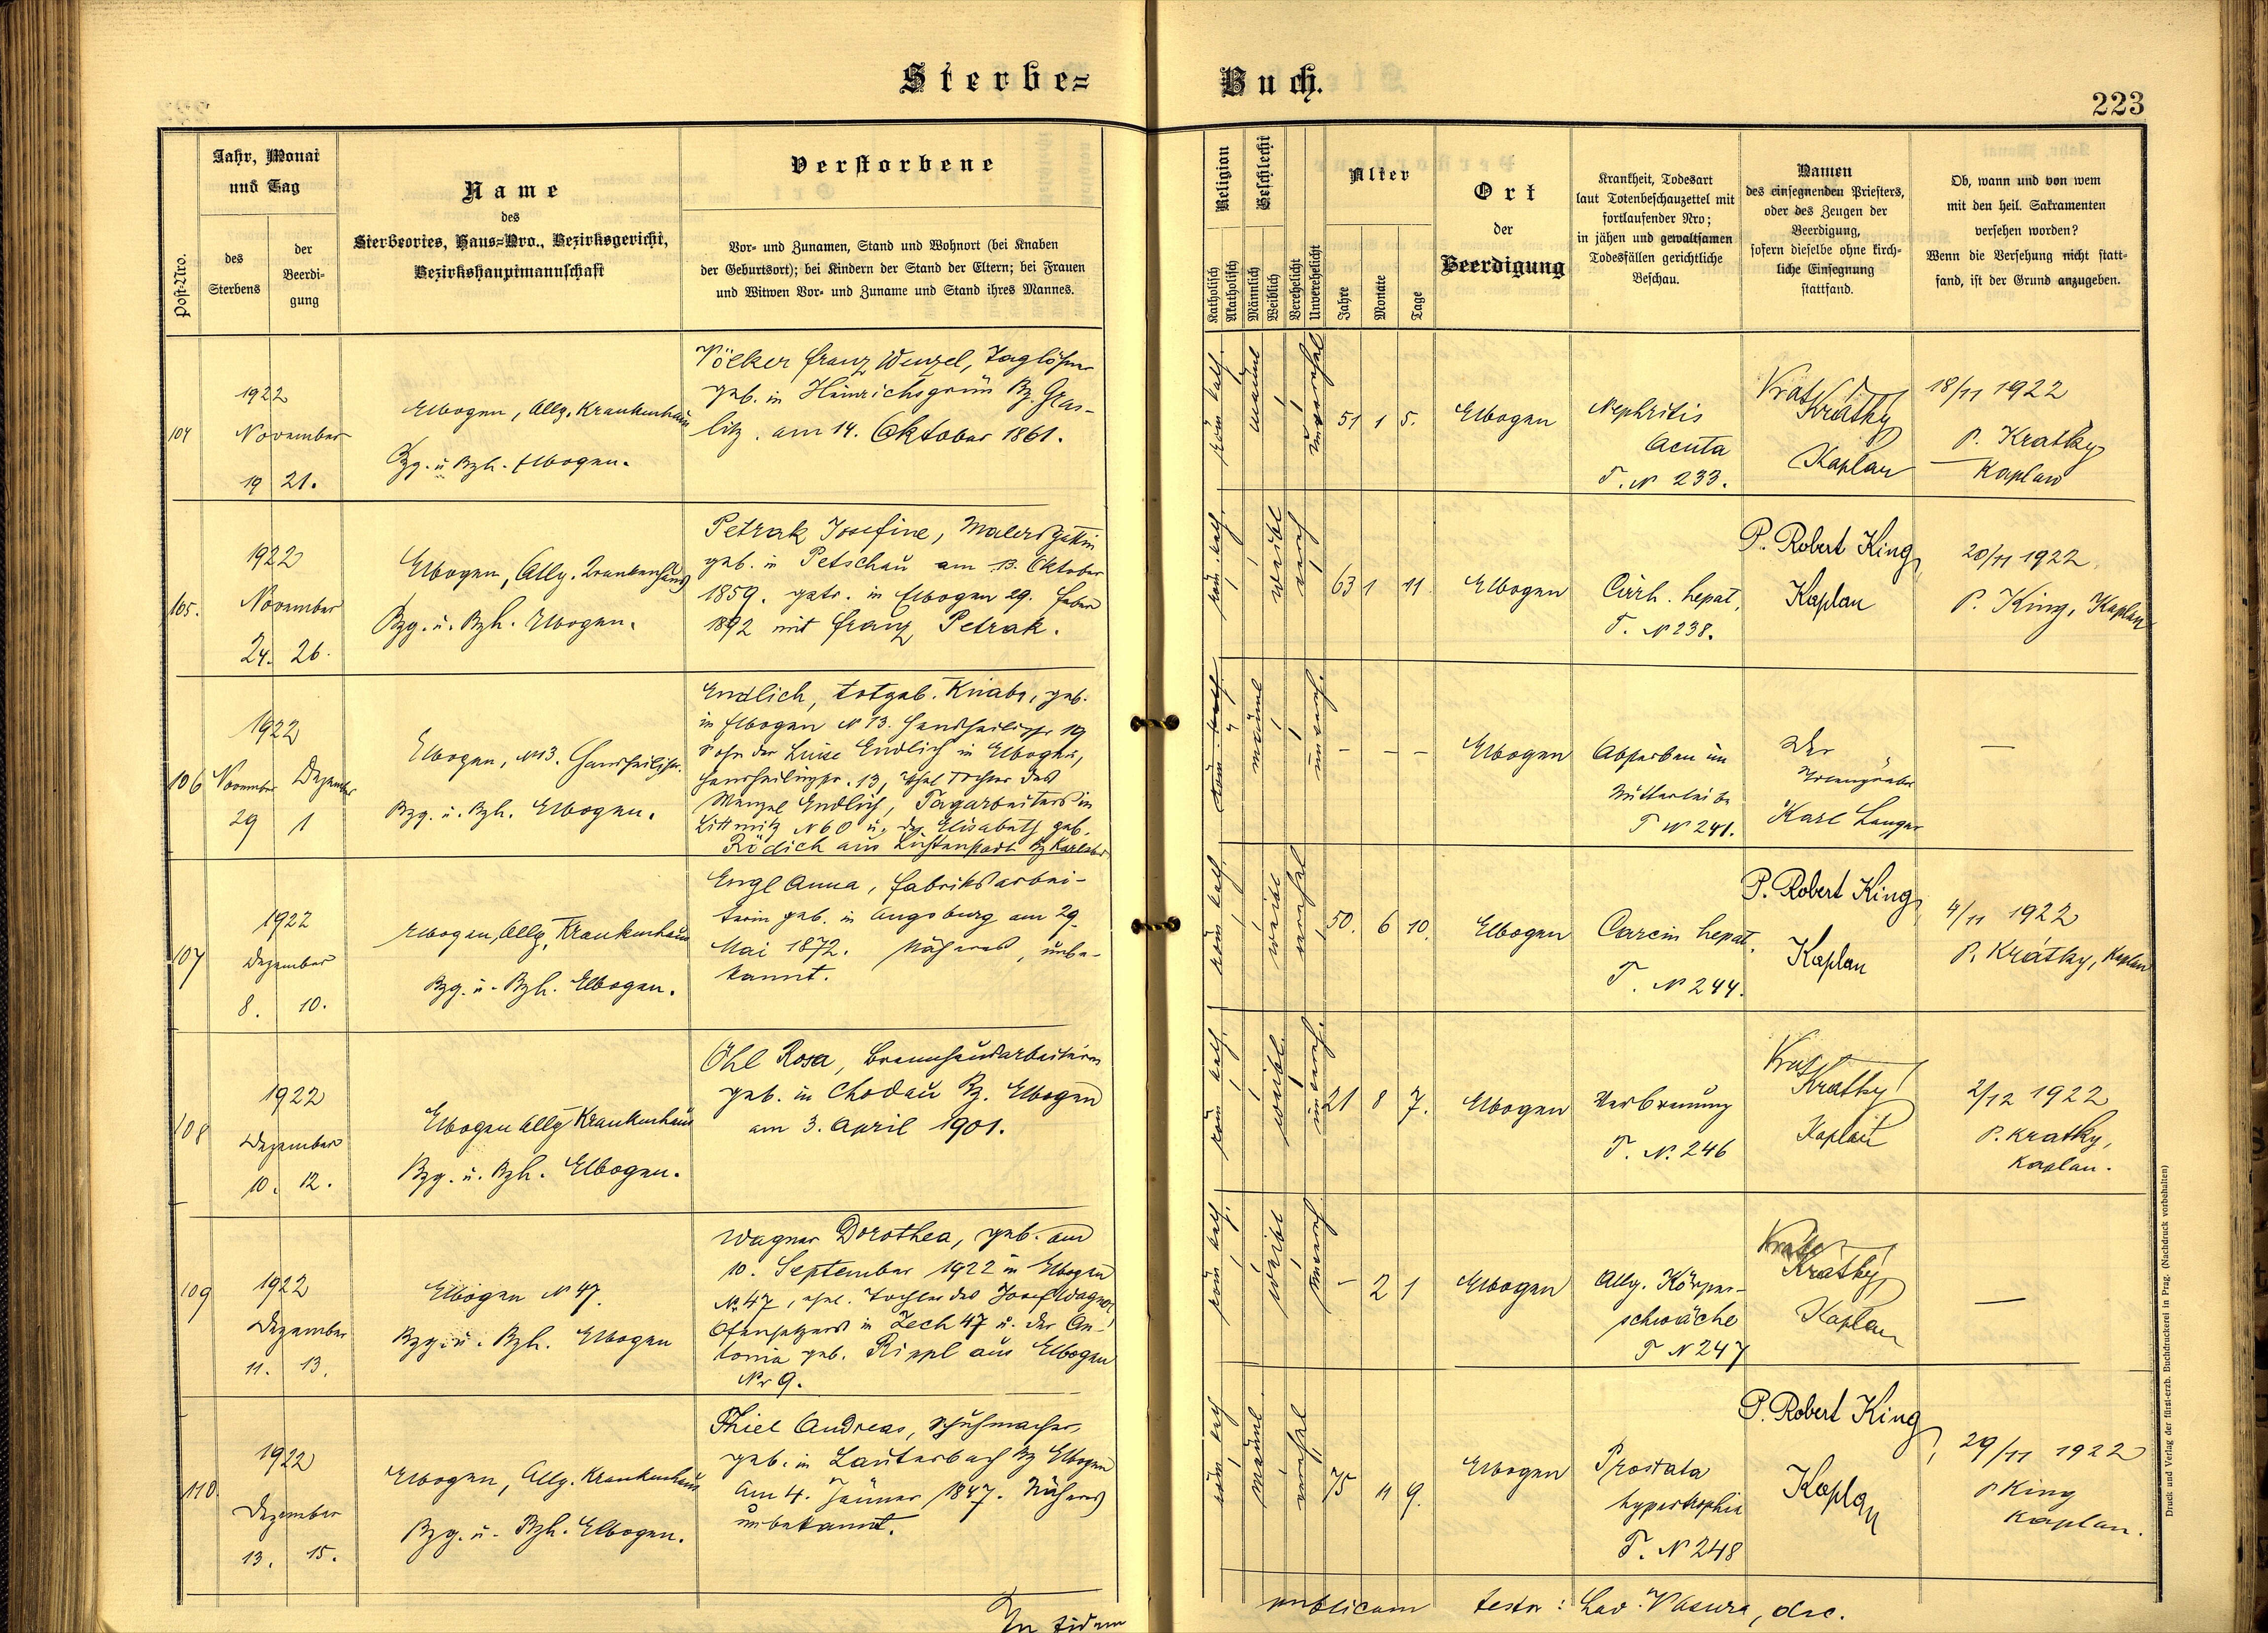 Sterbe=
Buch.
223
Post-Nro.
Jahr, Monat
und Tag
des
Sterbens
der
Beerdi-
gung
Name
des
Sterbeortes, Haus=Nro., Bezirksgericht,
Bezirkshauptmannschaft
Verstorbene
Vor- und Zunamen, Stand und Wohnort (bei Knaben
der Geburtsort); bei Kindern der Stand der Eltern; bei Frauen
und Witwen Vor- und Zuname und Stand ihres Mannes.
Religion
Katholisch
Akatholisch
Geschlecht
Männlich
Weiblich
Verehelicht
Unverehelicht
Alter
Jahre
Monate
Tage
Ort
der
Beerdigung
Krankheit, Todesart
laut Totenbeschauzettel mit
fortlaufender Nro;
in jähen und gewaltsamen
Todesfällen gerichtliche
Beschau.
Namen
des einsegnenden Priesters,
oder des Zeugen der
Beerdigung,
sofern dieselbe ohne kirch-
liche Einsegnung
stattfand.
Ob, wann und von wem
mit den heil. Sakramenten
versehen worden?
Wenn die Versehung nicht statt-
fand, ist der Grund anzugeben.
104
1922
November
19 21.
Elbogen, Allg. Krankenhaus
Bzg. u. Bzh. Elbogen.
Völker Franz Wenzel, Taglöhner
geb. in Heinrichsgrün Bz. Gras-
litz. am 14. Oktober 1861.
röm. kath.
männl
51 1 5.
Elbogen
Nephritis
Acuta
T. N 233.
Kratky
Kaplan
18/11 1922
P. Kratky
Kaplan
105.
1922
November
24. 26.
Elbogen, Allg. Krankenhaus
Bzg. u. Bzh. Elbogen.
Petrak Josefine, Malersgattin
geb. in Petschau am 13. Oktober
1859. getr. in Elbogen 29. Feber
1892 mit Franz Petrak.
röm. kath.
weibl
vereh
63 1 11
Elbogen
Cirrh. hepat.
T. N 238.
P. Robert King
Kaplan
20/11 1922.
P. King, Kaplan
106
1922
November Dezember
29 1
Elbogen, N 13.
Bzg. u. Bzh. Elbogen.
Endlich, totgeb. Knabe, geb.
in Elbogen N 13.
Sohn der Luise Endlich in Elbogen,
13, ehel Tochter des
Wenzel Endlich, Tagarbeiters in
Littmitz N 60 u. der Elisabeth geb.
Rödich aus Lichtenstadt Bz Karlsbad
röm. kath
männl
unvereh.
– – –
Elbogen
Absterben im
Mutterleibe
T N 241.
Der
Totengräber
Karl Langer
—
107
1922
Dezember
8. 10.
Elbogen, Allg. Krankenhaus
Bzg. u. Bzh. Elbogen.
Engl Anna, Fabriksarbei-
terin geb. in Augsburg am 29.
Mai 1872. Näheres, unbe-
kannt.
röm kath.
weibl
50. 6 10.
Elbogen
Carcin hepat.
T. N 244.
P. Robert King
Kaplan
4/11 1922
P. Krátky, Kaplan
108
1922
Dezember
10. 12.
Elbogen Allg Krankenhaus
Bzg. u. Bzh. Elbogen.
Öhl Rosa,
geb. in Chodau Bz. Elbogen
am 3. April 1901.
röm kath.
weibl.
unvereh.
21 8 7.
Elbogen
Verbrennung
T. N. 246
Kratky
Kaplan
2/12 1922
P. Kratky,
Kaplan.
109
1922
Dezember
11. 13.
Elbogen N 47.
Bzg. u. Bzh. Elbogen
Wagner Dorothea, geb. am
10. September 1922 in Elbogen
N. 47, ehel. Tochter des Josef Wagner
Ofensetzers in Zech 47 u. der An-
tonia geb. Rippl aus Elbogen
Nr 9.
röm kath.
weibl
unvereh
– 2 1
Elbogen
Allg. Körper-
schwäche
T N 247
Kratky
Kaplan
—
110.
1922
Dezember
13. 15.
Elbogen, Allg. Krankenhaus
Bzg. u. Bzh. Elbogen.
Thiel Andreas, Schuhmacher,
geb. in Lauterbach Bz Elbogen
am 4. Jänner 1847. Näheres
unbekannt.
röm kath
männl.
75 11 9.
Elbogen
Prostata
hypertrophia
T. N 248
P. Robert King
Kaplan
29/11 1922
P King
Kaplan.
In fidem
publicam testor: Lad. Vasura, dec.
Druck und Verlag der fürst-erzb. Buchdruckerei in Prag. (Nachdruck vorbehalten)